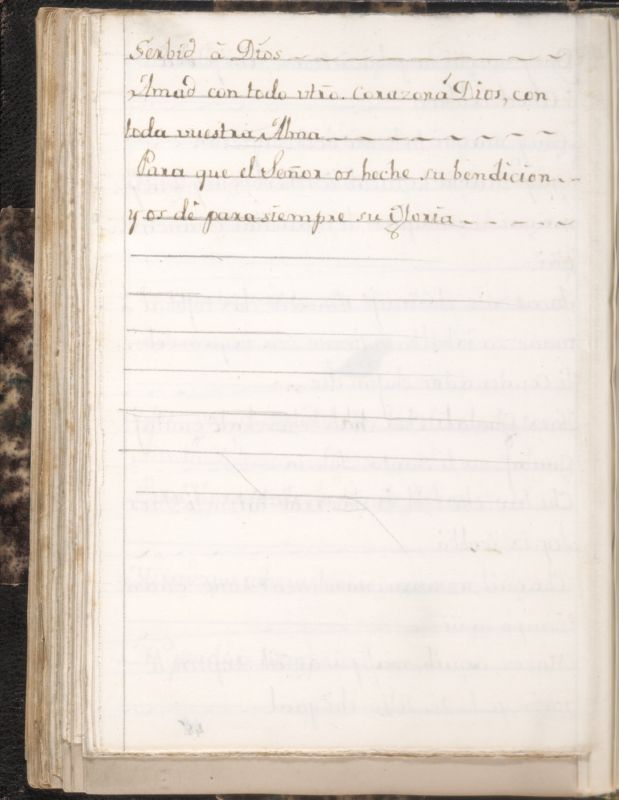 Serbid â Dios
Amad con todo vtrō. corazon á Dios, con
toda vuestra Alma
Para que el Señor os heche su bendicion
y os dê para siempre su Gloria